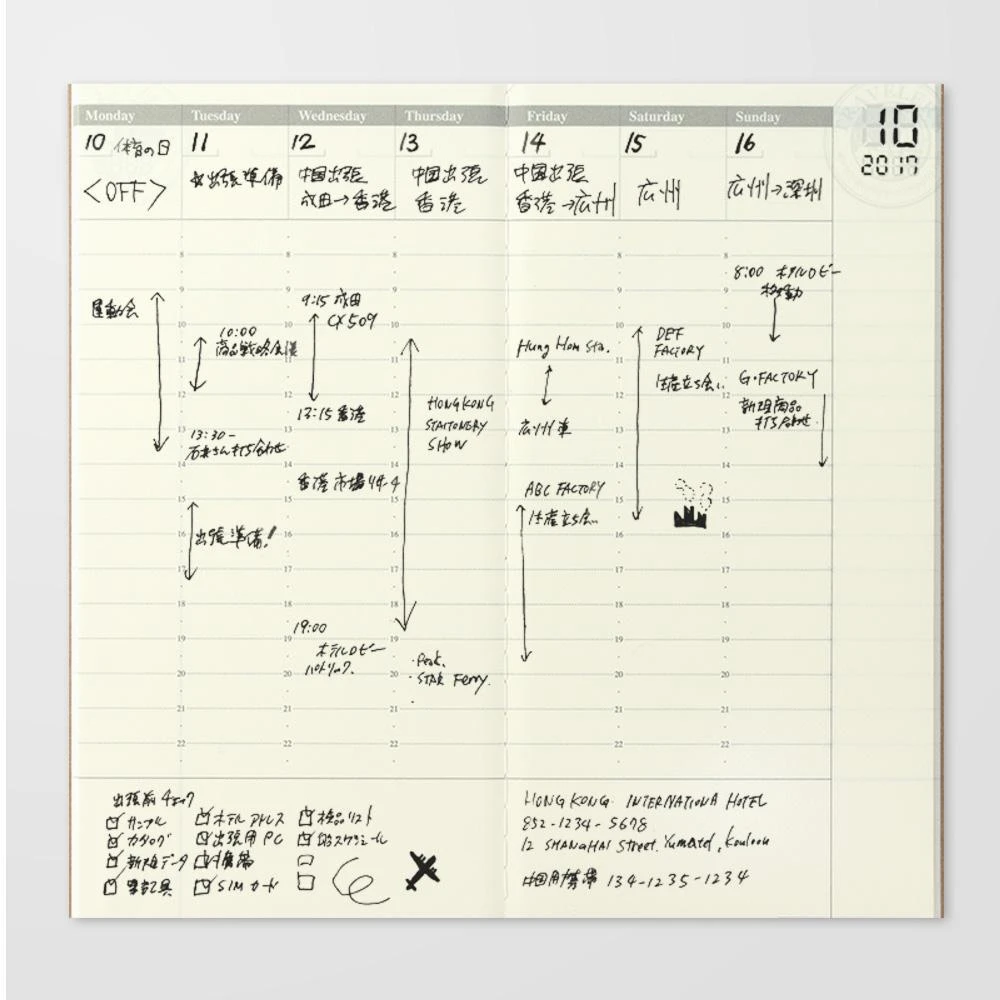 Monday
Tuesday
Wednesday
Thursday
Friday
Saturday
Sunday
10
2017
10 体育の日
11
12
13
14
15
16
<OFF>
出張準備
中国出張
成田→香港
中国出張
香港
中国出張
香港→広州
広州
広州→深圳
運動会
10:00
商品戦略会議
13:30-
石井さん打ち合わせ
出張準備!
9:15 成田
CX509
13:15 香港
香港市場リサーチ
19:00
ホテルロビー
パトリック.
HONGKONG
STATIONERY
SHOW
・Peak.
・STAR Ferry.
Hung Hom Sta.
広州東
ABC FACTORY
生産立ち会い
DEF
FACTORY
生産立ち会い
8:00 ホテルロビー
移動
G・FACTORY
新規商品
打ち合わせ
8
9
10
11
12
13
14
15
16
17
18
19
20
21
22
出張前チェック
サンプル
カタログ
新規データ
筆記具
ホテルアドレス
出張用PC
携帯
SIMカード
検品リスト
スケジュール
HONG KONG INTERNATIONA HOTEL
852-1234-5678
12 SHANGHAI Street. Yumatei, Kouloon
中国用携帯 134-1235-1234